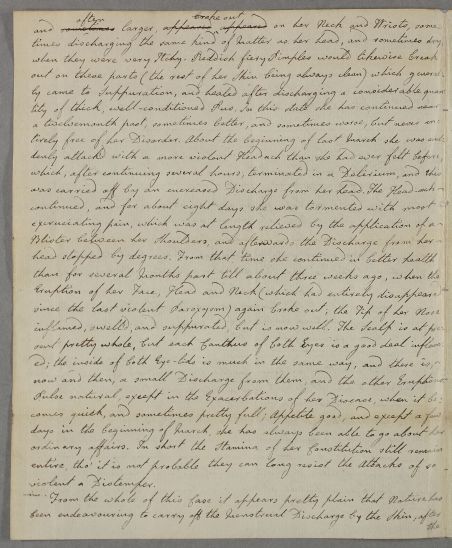 often broke out
and sometimes larger, appeared appeared on her Neck and Wrists, some
times discharging the same kind of Matter as her head, and sometimes dry
when they were very Itchy. Reddish fiery Pimples would likewise break
out on these parts (the rest of her Skin being always clean) which general
ly came to Suppuration, and healed after discharging a considerable quan
tity of thick, well-conditioned Pus. In this state she has continued near
a twelvemonth past, sometimes better, and sometimes worse, but never en
tirely free of her Disorder. About the beginning of last March she was sud
denly attackd with a more violent Headach than she had ever felt before,
which, after continuing several hours, terminated in a Delerium, and this
was carried off by an encreased Discharge from her head. The Head-ach
continued, and for about eight days she was tormented with most
excruciating pain, which was at length relieved by the application of a
Blister between her Shoulders, and afterwards the Discharge from her
head stopped by degrees. From that time she continued in better health
than for several Months past till about three weeks ago, when the
Eruption of her Face, Head and Neck (which had entirely disappeared
since the last violent Paroxysm) again broke out; the Tip of her Nose
inflamed, swell'd, and suppurated, but is now well. The Scalp is at pre
sent pretty whole, but each Canthus of both Eyes is a good deal inflam
ed; the inside of both Eye-lids is much in the same way; and there is,
now and then, a small Discharge from them, and the other Eruptions.
Pulse natural, except in the Exacerbations of her Disease, when it be
comes quick, and sometimes pretty full; Appetite good, and except a few
days in the beginning of March, she has always been able to go about her
ordinary affairs. In short the Stamina of her Constitution still remain
entire, tho' it is not probable they can long resist the Attacks of so
violent a Distemper.
From the whole of this Case it appears pretty plain that Nature has
been endeavouring to carry off the Menstrual Discharge by the Skin, after
the